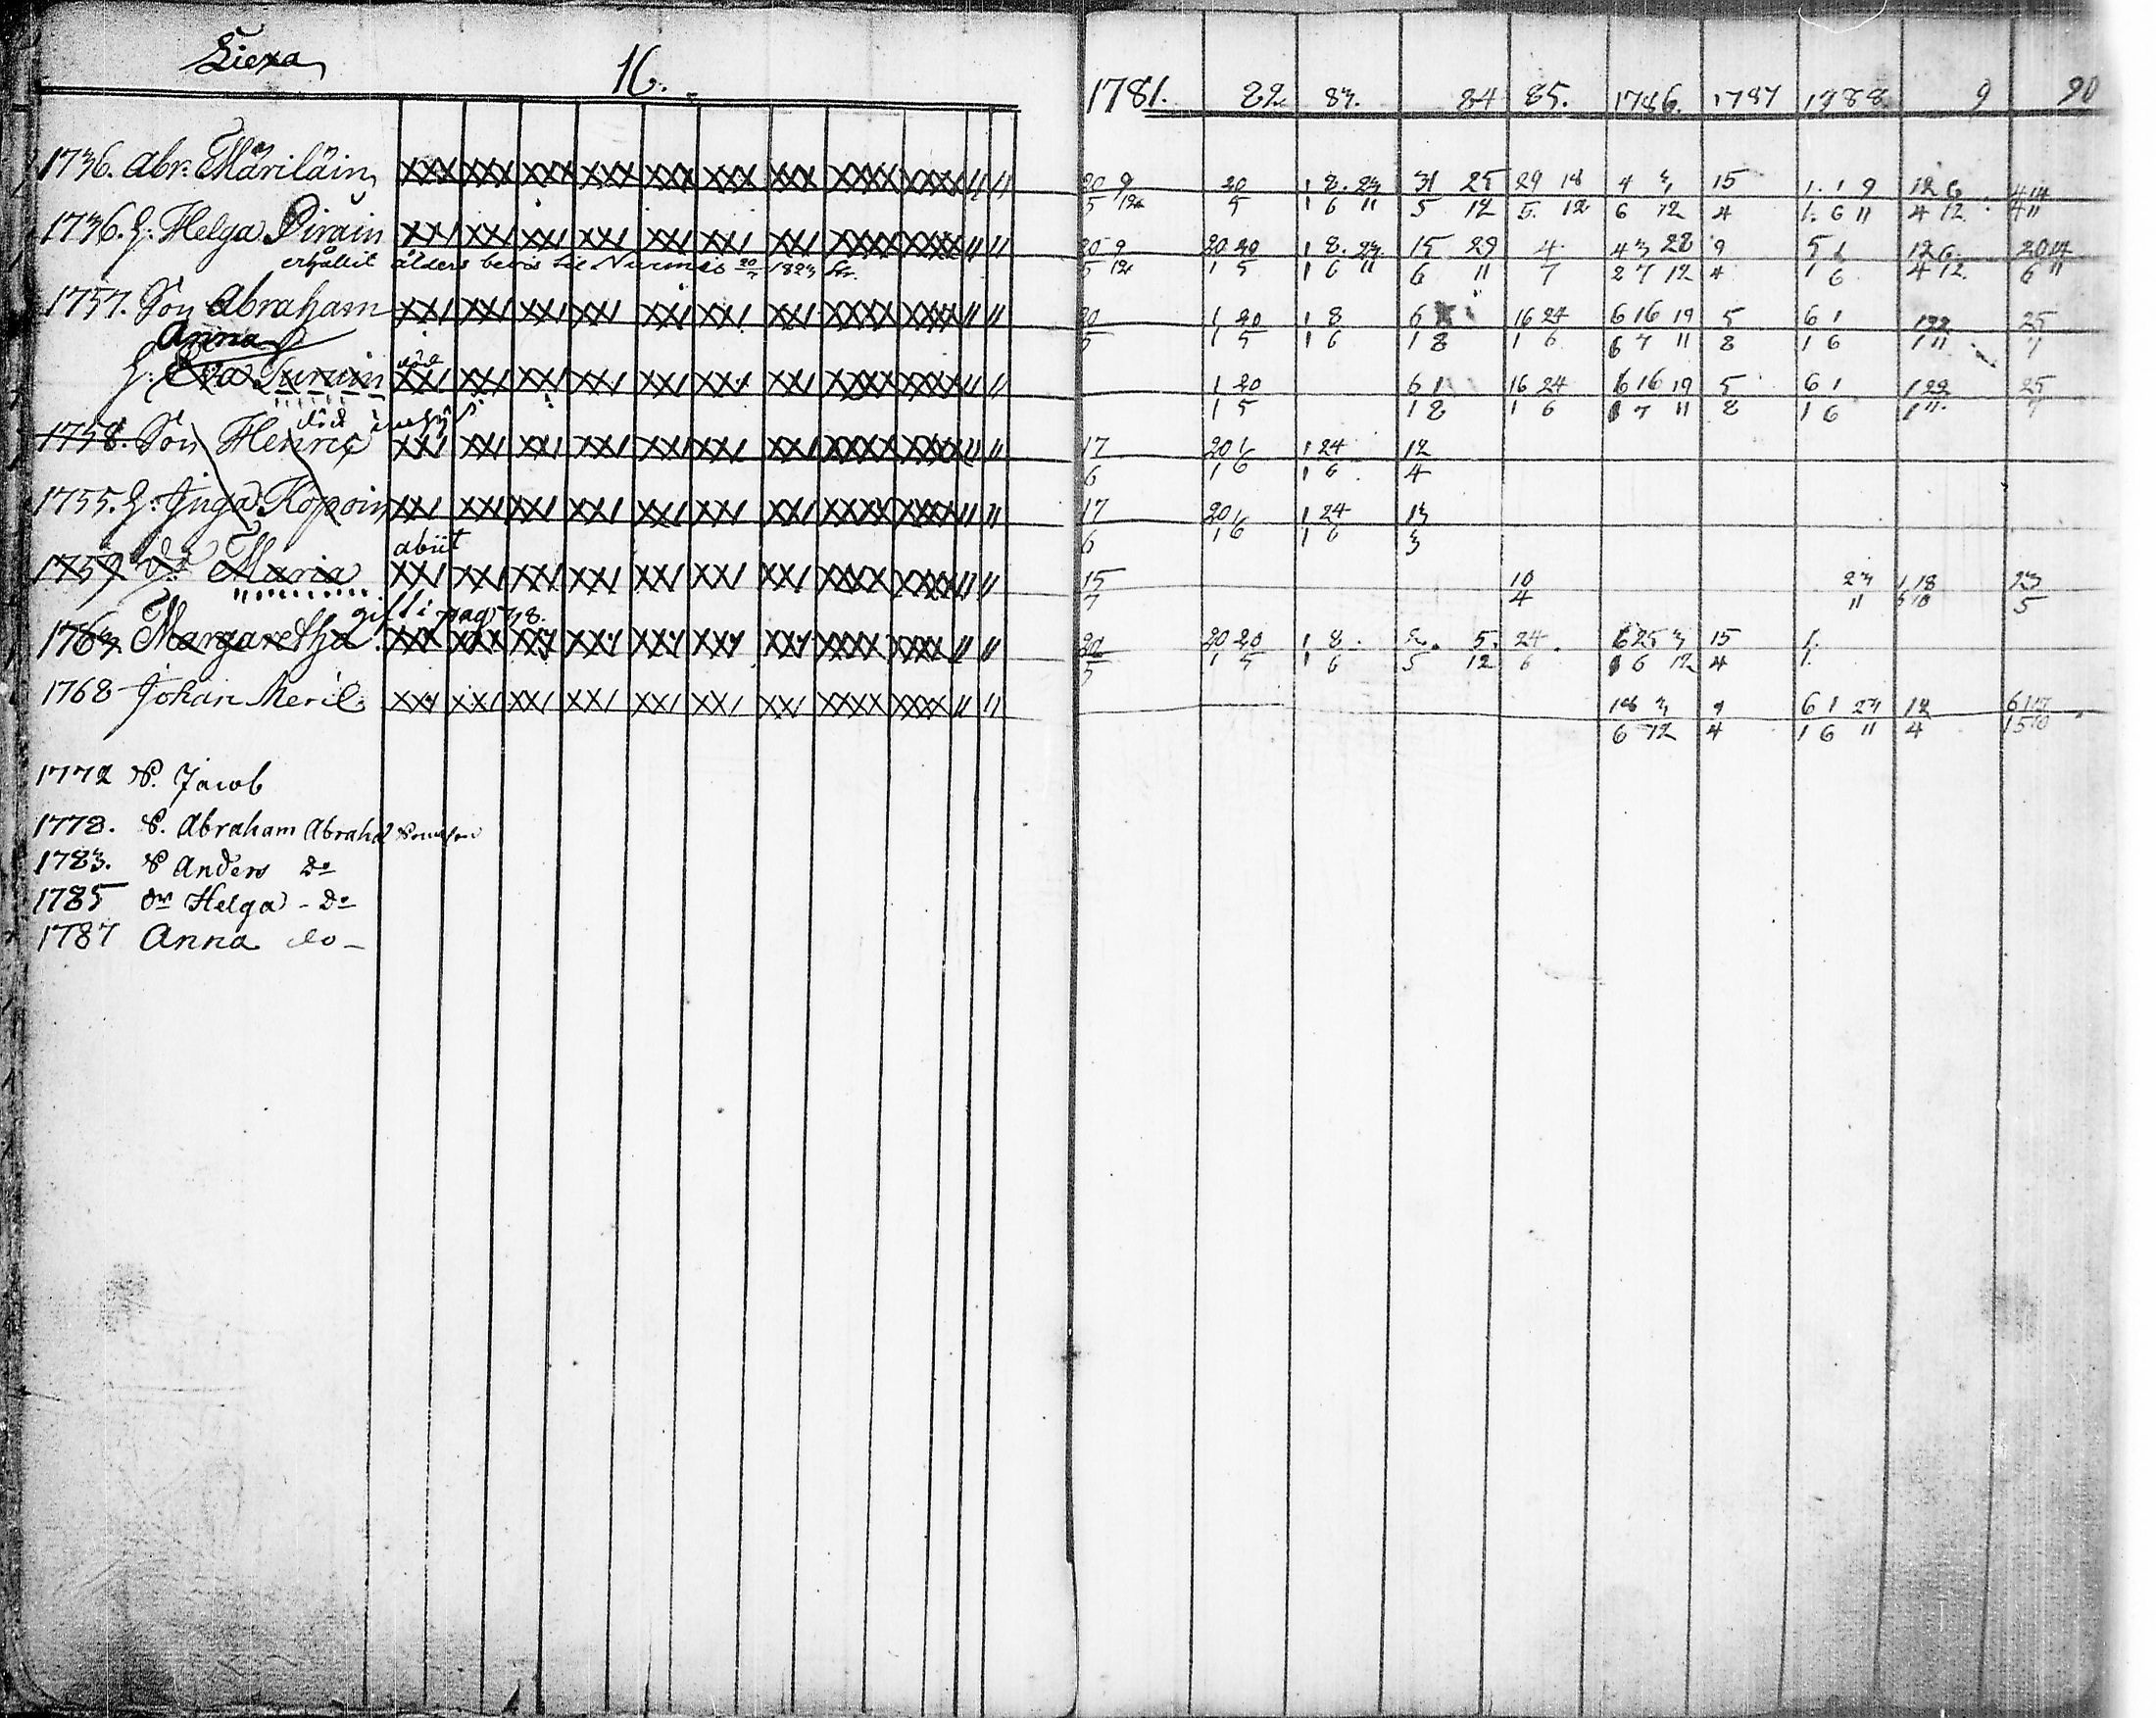 Liexa
16.
1781. 82 83. 84 85. 1786. 1787 1788 9 90
1736. Abr. Märiläin
20/5 9/12 20/5 1/1 8/6 23/11 31/5 25/12 29/5 18/12 4/6 3/12 15/4 1/1 1/6 9/11 12/4 6/12 4/4 14/11
1736. H: Helga Pirain
20/5 9/12 20/1 20/5 1/1 8/6 23/11 15/6 29/11 4/7 4/2 3/7 28/12 9/4 5/1 1/6 12/4 6/12 20/6 14/11
erhållit ålders bevis til Nurmis 20/7 1823
1757. Son Abraham
20/5 1/1 20/5 1/1 8/6 6/1 16/1 24/6 6/6 16/7 19/11 5/8 6/1 1/6 1/1 22/11 25/7
Anna
H: Eva Turuin
1/1 20/5 6/1 1/8 16/1 24/6 6 16/7 19/11 5/8 6/1 1/6 1/1 22/11 25/7
död
1758. Son Henric
17/6 20/1 1/6 1/1 24/6 12/4
1755. H: Inga Kopoin
17/6 20/1 1/6 1/1 24/6 13/3
abiit
1759 Dr Maria
15/7 10/4 23/11 1 18/10 23/5
gift i pag 78.
1763 Margaretha
20/5 20/1 20/5 1/1 8/6 5/12 24/6 6/1 25/6 3/12 15/4 1/1
1768 Johan Meril.
18/6 3/12 9/4 6/1 1/6 23/11 12/4
1772 S. Jacob
1778. S. Abraham Abrah
1783. S Anders Do
1785 Dr Helga - Do
1787 Anna do -